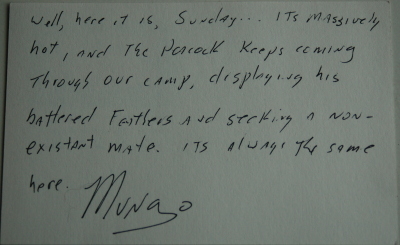 Well, here it is, Sunday... Its massively
hot, and the Peacock keeps coming
through our camp, displaying his
battered feathers and seeking a non-
existant mate. Its always the same
here. Mungo